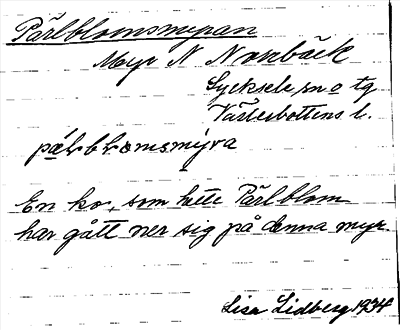 Pärlblomsmyran
Myr N Norrbäck
Lycksele sn o tg
Västerbottens l.
pä́rbḷomsmýra
En ko, som hette Pärlblom
har gått ner sig på denna myr.
Lisa Lidberg 1934